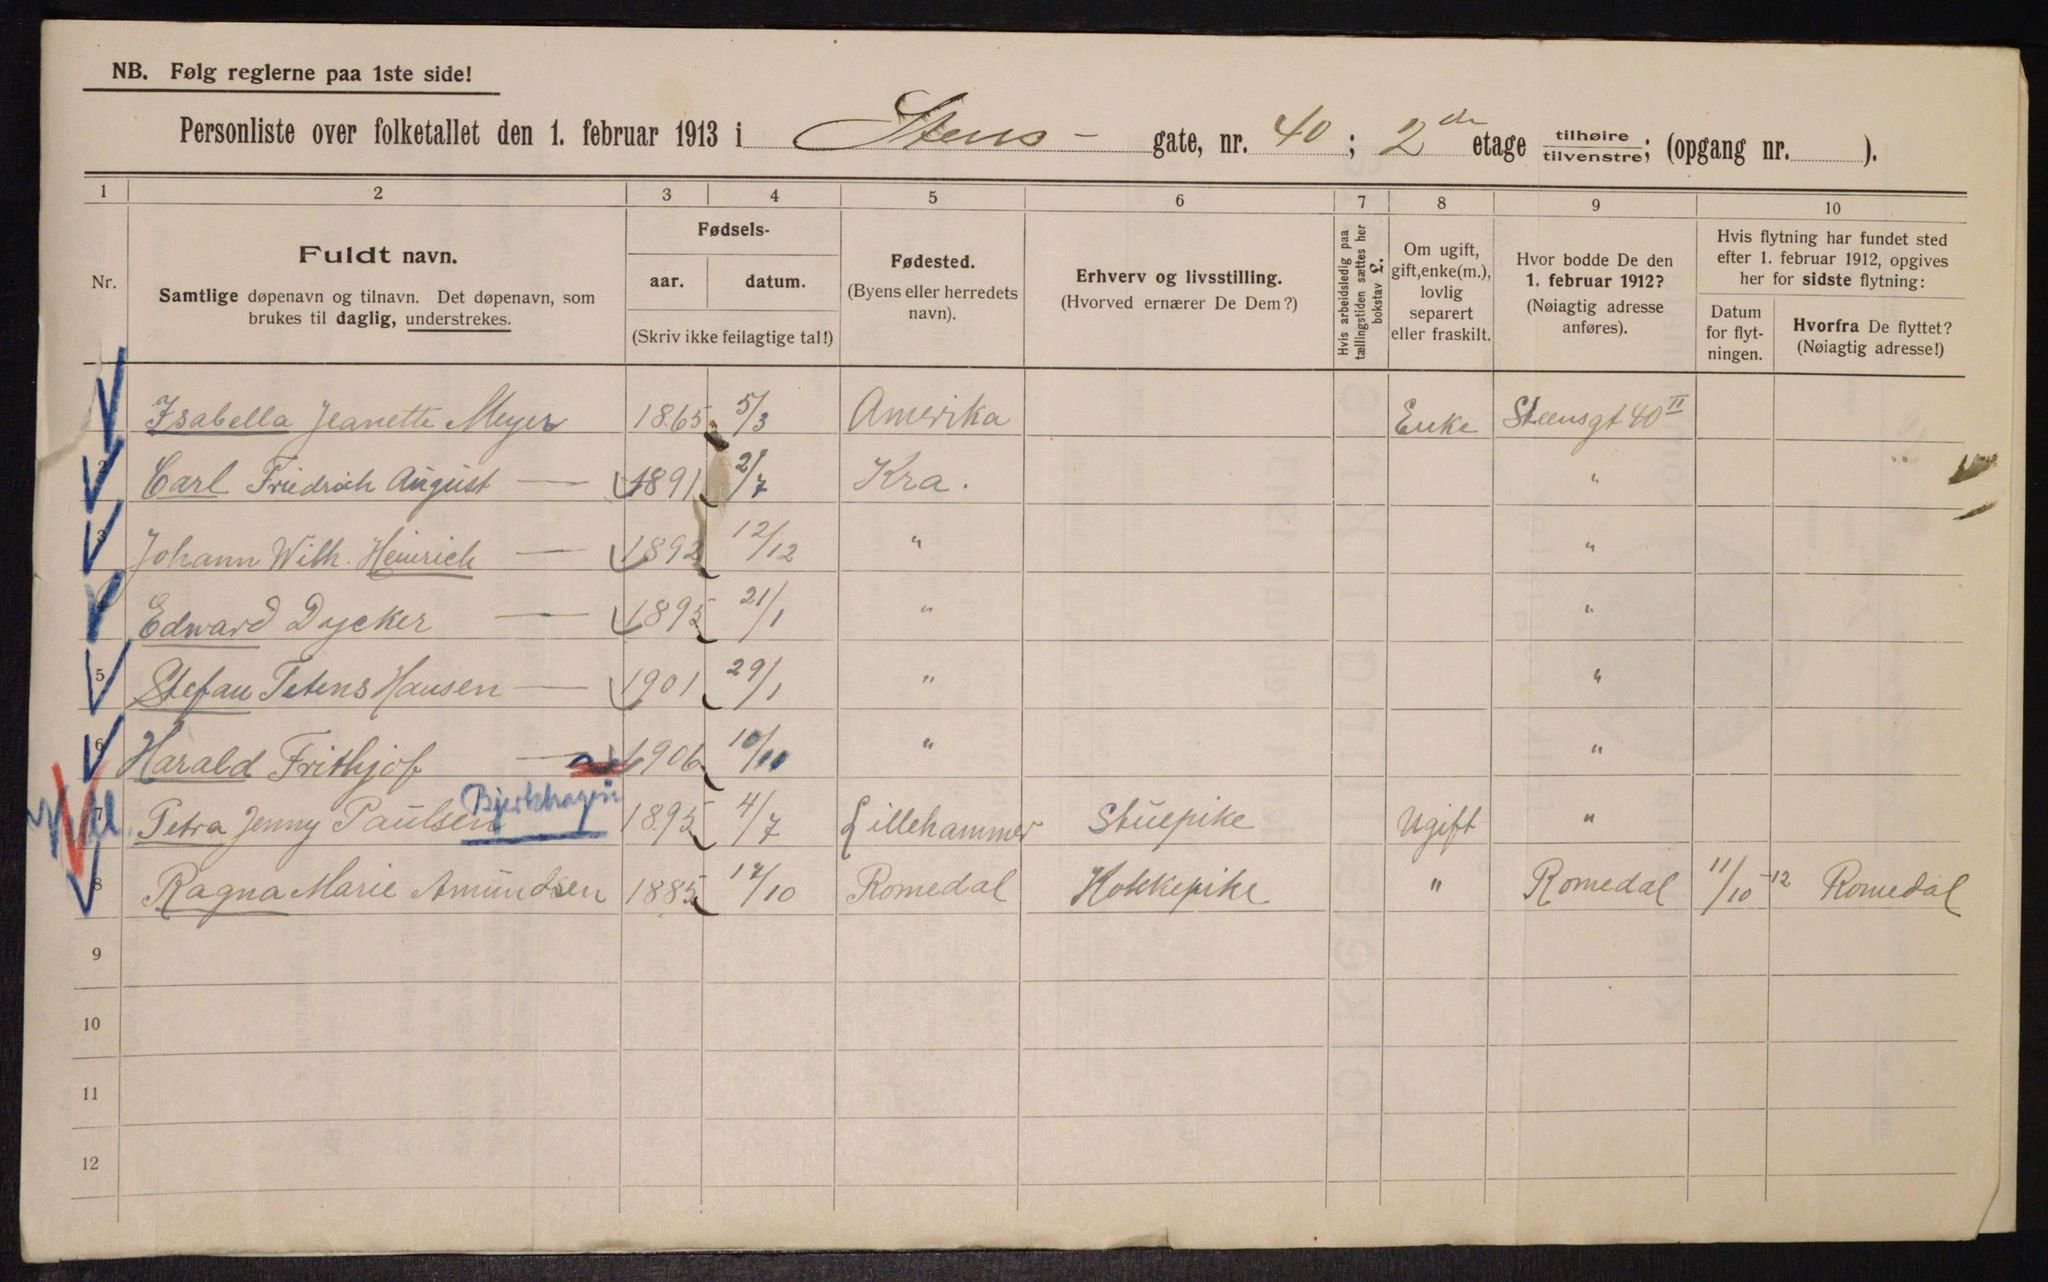 NB. Følg reglerne paa 1ste side!
Personliste over folketallet den 1. februar 1913 i Stens- gate, nr. 40 ; 2den etage tilhøire / tilvenstre ; (opgang nr. ).
1 2 3 4 5 6 7 8 9 10
Nr.
Fuldt navn.
Samtlige døpenavn og tilnavn. Det døpenavn, som
brukes til daglig, understrekes.
Fødsels-
aar. datum.
(Skriv ikke feilagtige tal!)
Fødested.
(Byens eller herredets
navn).
Erhverv og livsstilling.
(Hvorved ernærer De Dem?)
Hvis arbeidsledig paa
tællingstiden sættes her
bokstav L.
Om ugift,
gift, enke(m.),
lovlig
separert
eller fraskilt.
Hvor bodde De den
1. februar 1912?
(Nøiagtig adresse
anføres).
Hvis flytning har fundet sted
efter 1. februar 1912, opgives
her for sidste flytning:
Datum
for flyt-
ningen.
Hvorfra De flyttet?
(Nøiagtig adresse!)
Isabella Jeanette Meyer 1865 5/3 Amerika Enke Steensgt 40 II
2 Carl Friedrich August — 1891 2/7 Kra. "
3 Johann Wilh. Heinrich — 1892 12/12 " "
Edward Dycker — 1895 21/1 " "
5 Stefan Tetens Hansen — 1901 29/1 " "
6 Harald Frithjof — 1906 10/10 " "
Bjerkhagen
7 Petra Jenny Paulsen 1895 4/7 Lillehammer Stuepike Ugift "
8 Ragna Marie Amundsen 1885 17/10 Romedal Kokkepike " Romedal 11/10-12 Romedal
9
10
11
12